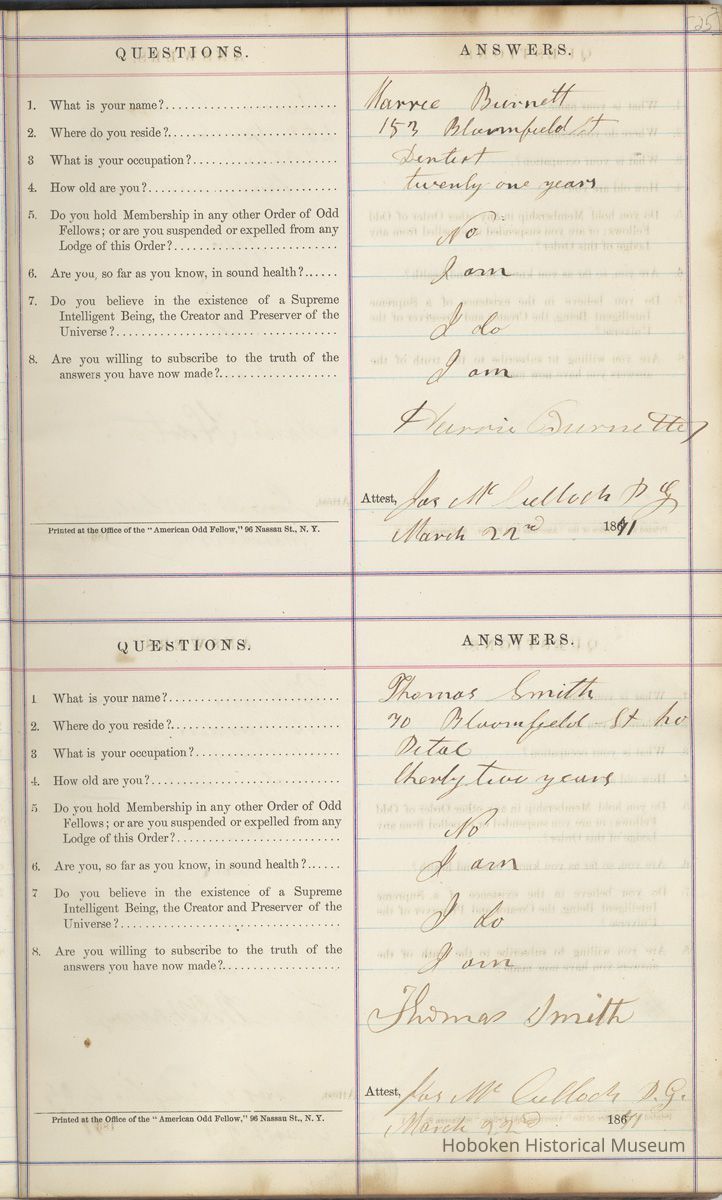 25
QUESTIONS. ANSWERS.
1. What is your name? Harrie Burnett
2. Where do you reside? 153 Bloomfield St
3 What is your occupation? Dentist
4. How old are you? twenty one years
5. Do you hold Membership in any other Order of Odd
Fellows; or are you suspended or expelled from any
Lodge of this Order? No
6. Are you, so far as you know, in sound health? I am
7. Do you believe in the existence of a Supreme
Intelligent Being, the Creator and Preserver of the
Universe? I do
8. Are you willing to subscribe to the truth of the
answers you have now made? I am
Harrie Burnette
Attest, Jas Mc Culloch D G
Printed at the Office of the "American Odd Fellow," 96 Nassau St., N. Y.
March 22nd 1871
QUESTIONS. ANSWERS.
1 What is your name? Thomas Smith
2. Where do you reside? 70 Bloomfield St
3 What is your occupation?
4. How old are you? two years
5 Do you hold Membership in any other Order of Odd
Fellows; or are you suspended or expelled from any
Lodge of this Order? No
6. Are you, so far as you know, in sound health? I am
7 Do you believe in the existence of a Supreme
Intelligent Being, the Creator and Preserver of the
Universe? I do
8. Are you willing to subscribe to the truth of the
answers you have now made? I am
Thomas Smith
Attest, Jas Mc Culloch D. G.
Printed at the Office of the "American Odd Fellow," 96 Nassau St., N. Y.
March 22nd 1871
Hoboken Historical Museum